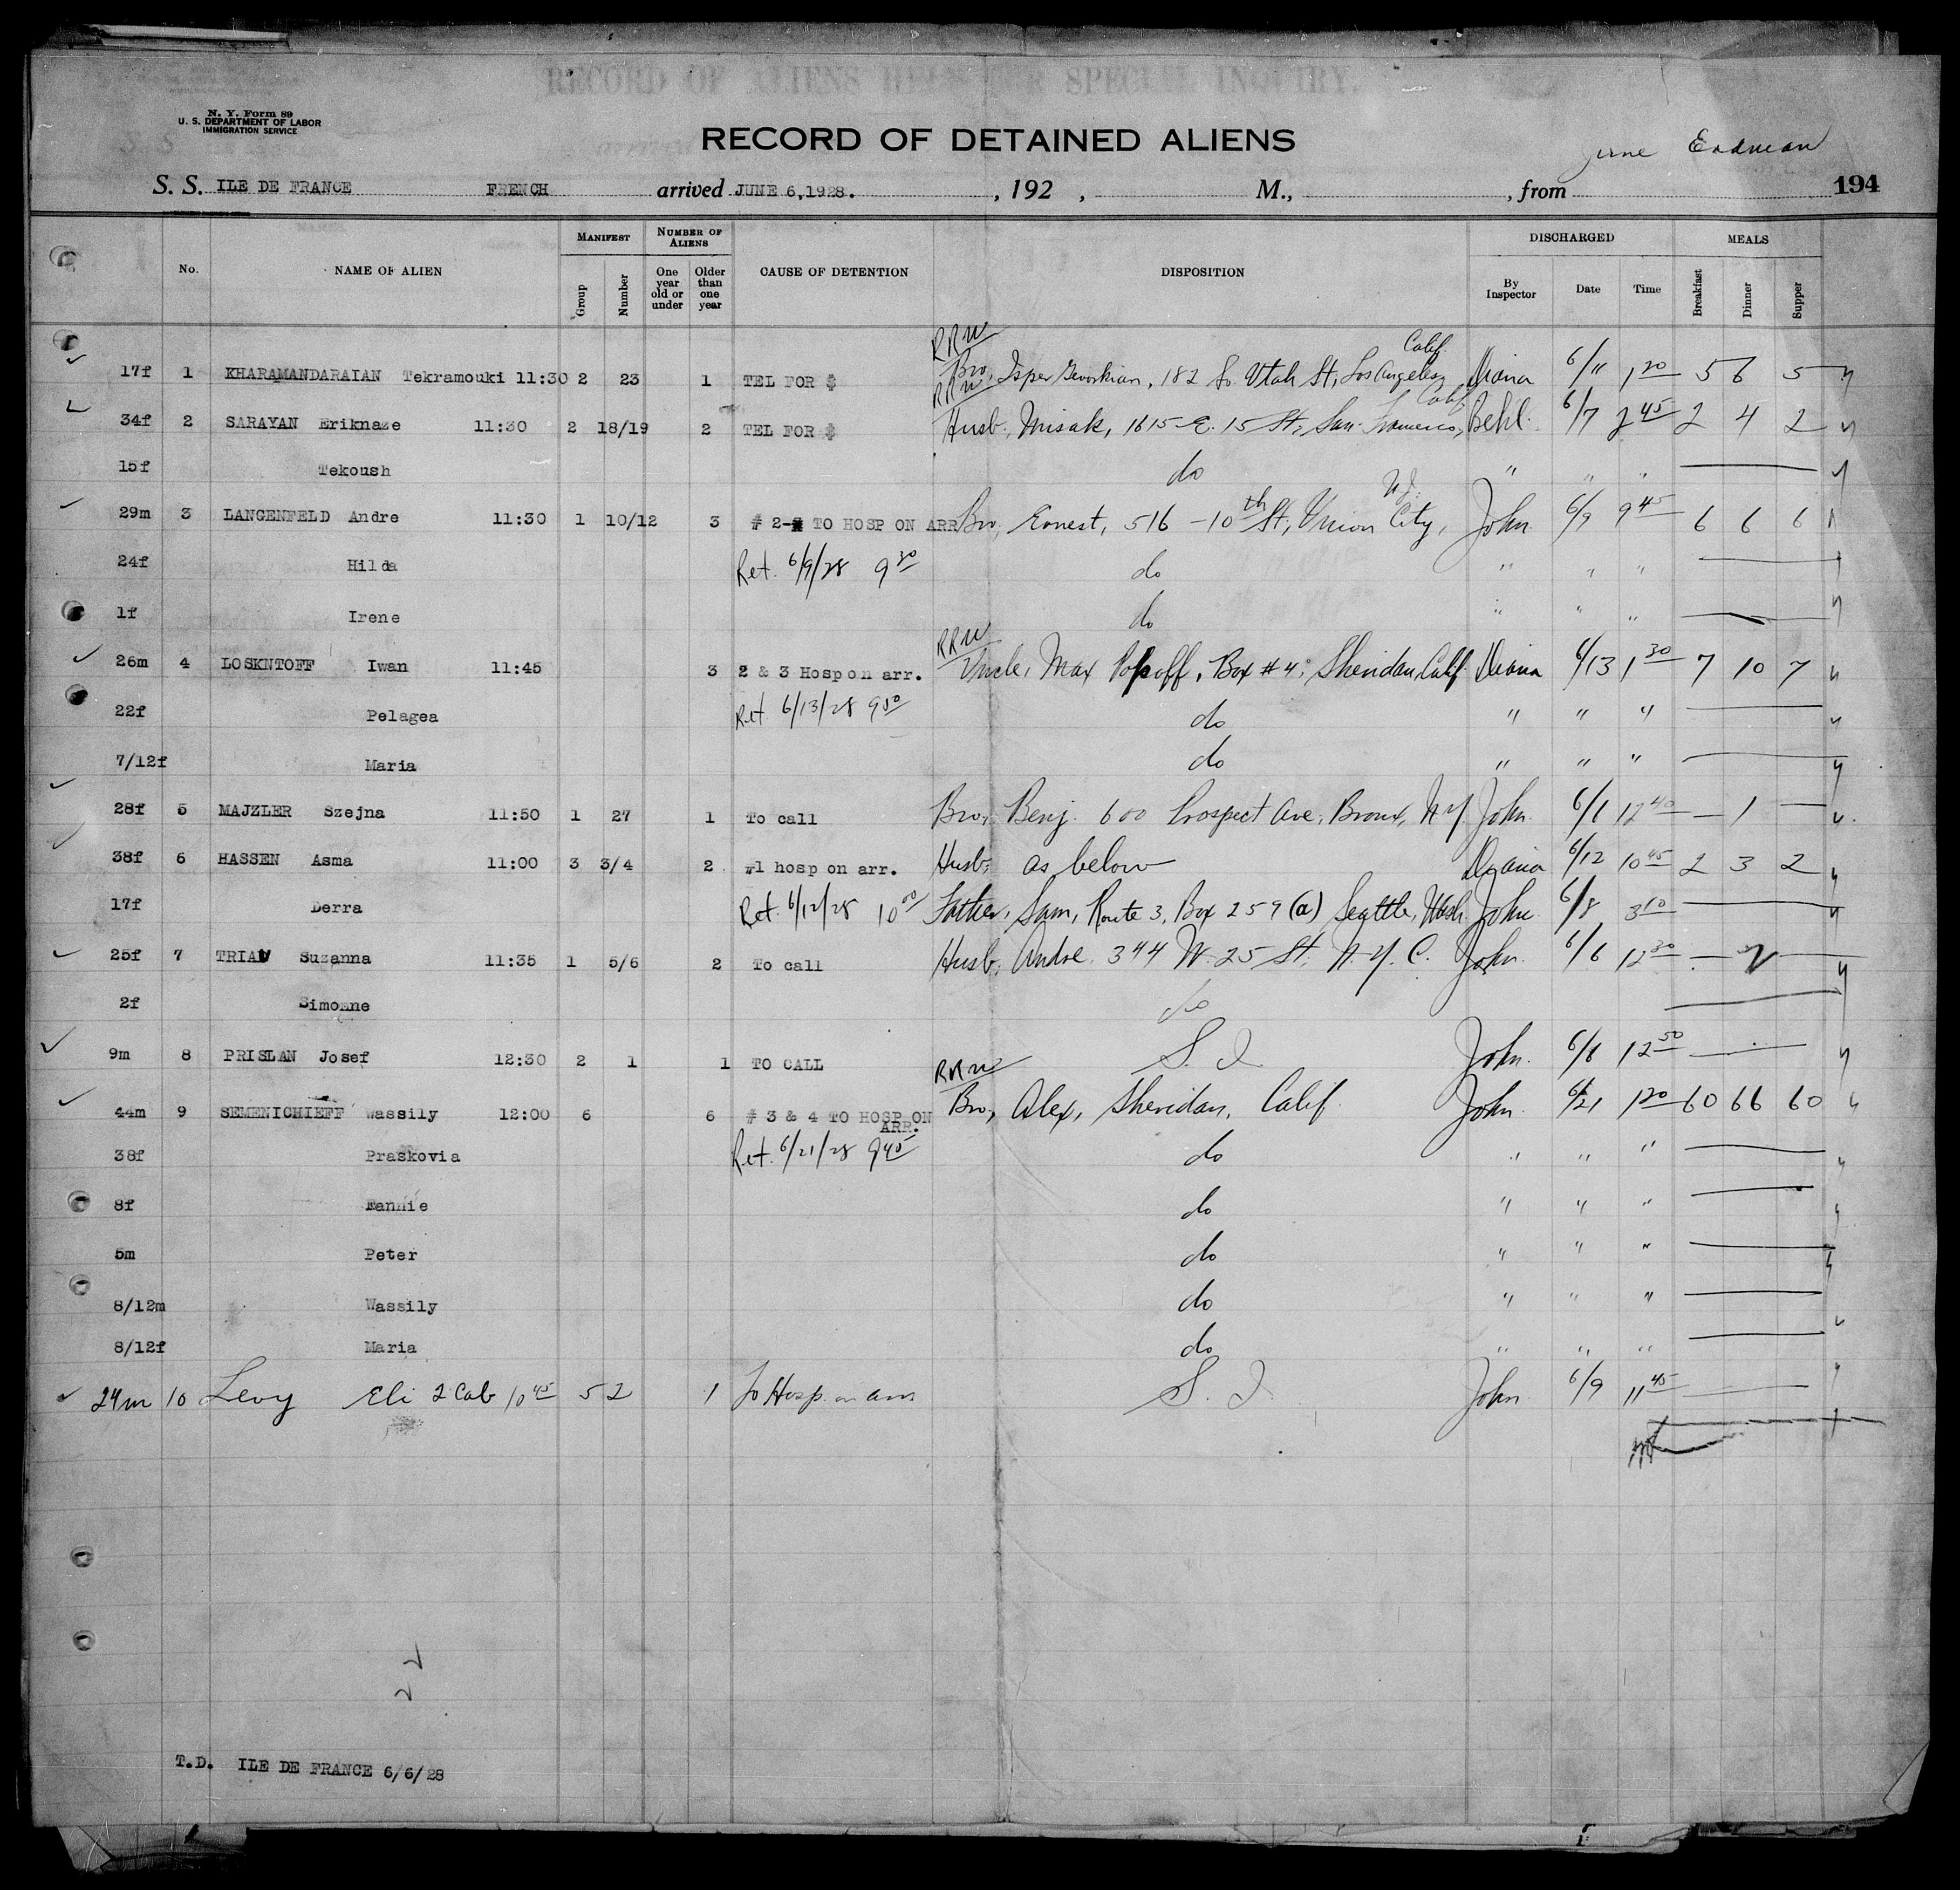 RECORD OF ALIENS HELD FOR SPECIAL INQUIRY.
N. Y. Form 89
U. S. DEPARTMENT OF LABOR
IMMIGRATION SERVICE
RECORD OF DETAINED ALIENS
Erdman
S. S. ILE DE FRANCE FRENCH arrived JUNE 6,1928. , 192 , M., , from 194
No. NAME OF ALIEN MANIFEST Group Number NUMBER OF ALIENS One year old or under Older than one year CAUSE OF DETENTION DISPOSITION DISCHARGED By Inspector Date Time MEALS Breakfast Dinner Supper
RRW Calif.
17f 1 KHARAMANDARAIAN Tekramouki 11:30 2 23 1 TEL FOR $ Bro, Isper Gevorkian, 182 So. Utah St, Los Angeles, Diana 6/11 1 20 5 6 5
RRW Calif
34f 2 SARAYAN Eriknaze 11:30 2 18/19 2 TEL FOR $ Husb, Misak, 1615-E. 15 St, San Francisco, Behl. 6/7 2 45 2 4 2
15f Tekoush do " " "
N.J.
29m 3 LANGENFELD Andre 11:30 1 10/12 3 # 2- TO HOSP ON ARR Bro, Ernest, 516 - 10th St, Union City, John 6/9 9 45 6 6 6
24f Hilda Ret. 6/9/28 9 30 do " " "
1f Irene do " " "
RRW
26m 4 LOSKNTOFF Iwan 11:45 3 2 & 3 Hosp on arr. Uncle, Max Popoff, Box #4, Sheridan, Calif Diana 6/13 1 30 7 10 7
22f Pelagea Ret. 6/13/28 9 50 do " " "
7/12f Maria do " " "
28f 5 MAJZLER Szejna 11:50 1 27 1 To call Bro, Benj. 600 Prospect Ave, Bronx, N Y John 6/6 12 40 — 1 —
38f 6 HASSEN Asma 11:00 3 3/4 2 #1 hosp on arr. Husb, as below Diana 6/12 10 45 2 3 2
17f Derra Ret. 6/12/28 10 00 Father, Sam, Route 3, Box 259 (a) Seattle, Wash. John 6/8 3 10
25f 7 TRIAU Suzanna 11:35 1 5/6 2 To call Husb, Andre 344 W. 25 St, N. Y. C. John 6/6 12 30
2f Simonne do
9m 8 PRISLAN Josef 12:30 2 1 1 TO CALL S. I. John 6/6 12 50
RRW
44m 9 SEMENICHIEFF Wassily 12:00 6 6 # 3 & 4 TO HOSP ON ARR. Bro, Alex, Sheridan, Calif. John 6/21 1 20 60 66 60
38f Praskovia Ret. 6/21/28 9 45 do " " "
8f Fannie do " " "
5m Peter do " " "
8/12m Wassily do " " "
8/12f Maria do " " "
24m 10 Levy Eli 2 Cab 10 45 5 2 1 To Hosp. on arr S. I. John 6/9 11 45
T.D. ILE DE FRANCE 6/6/28